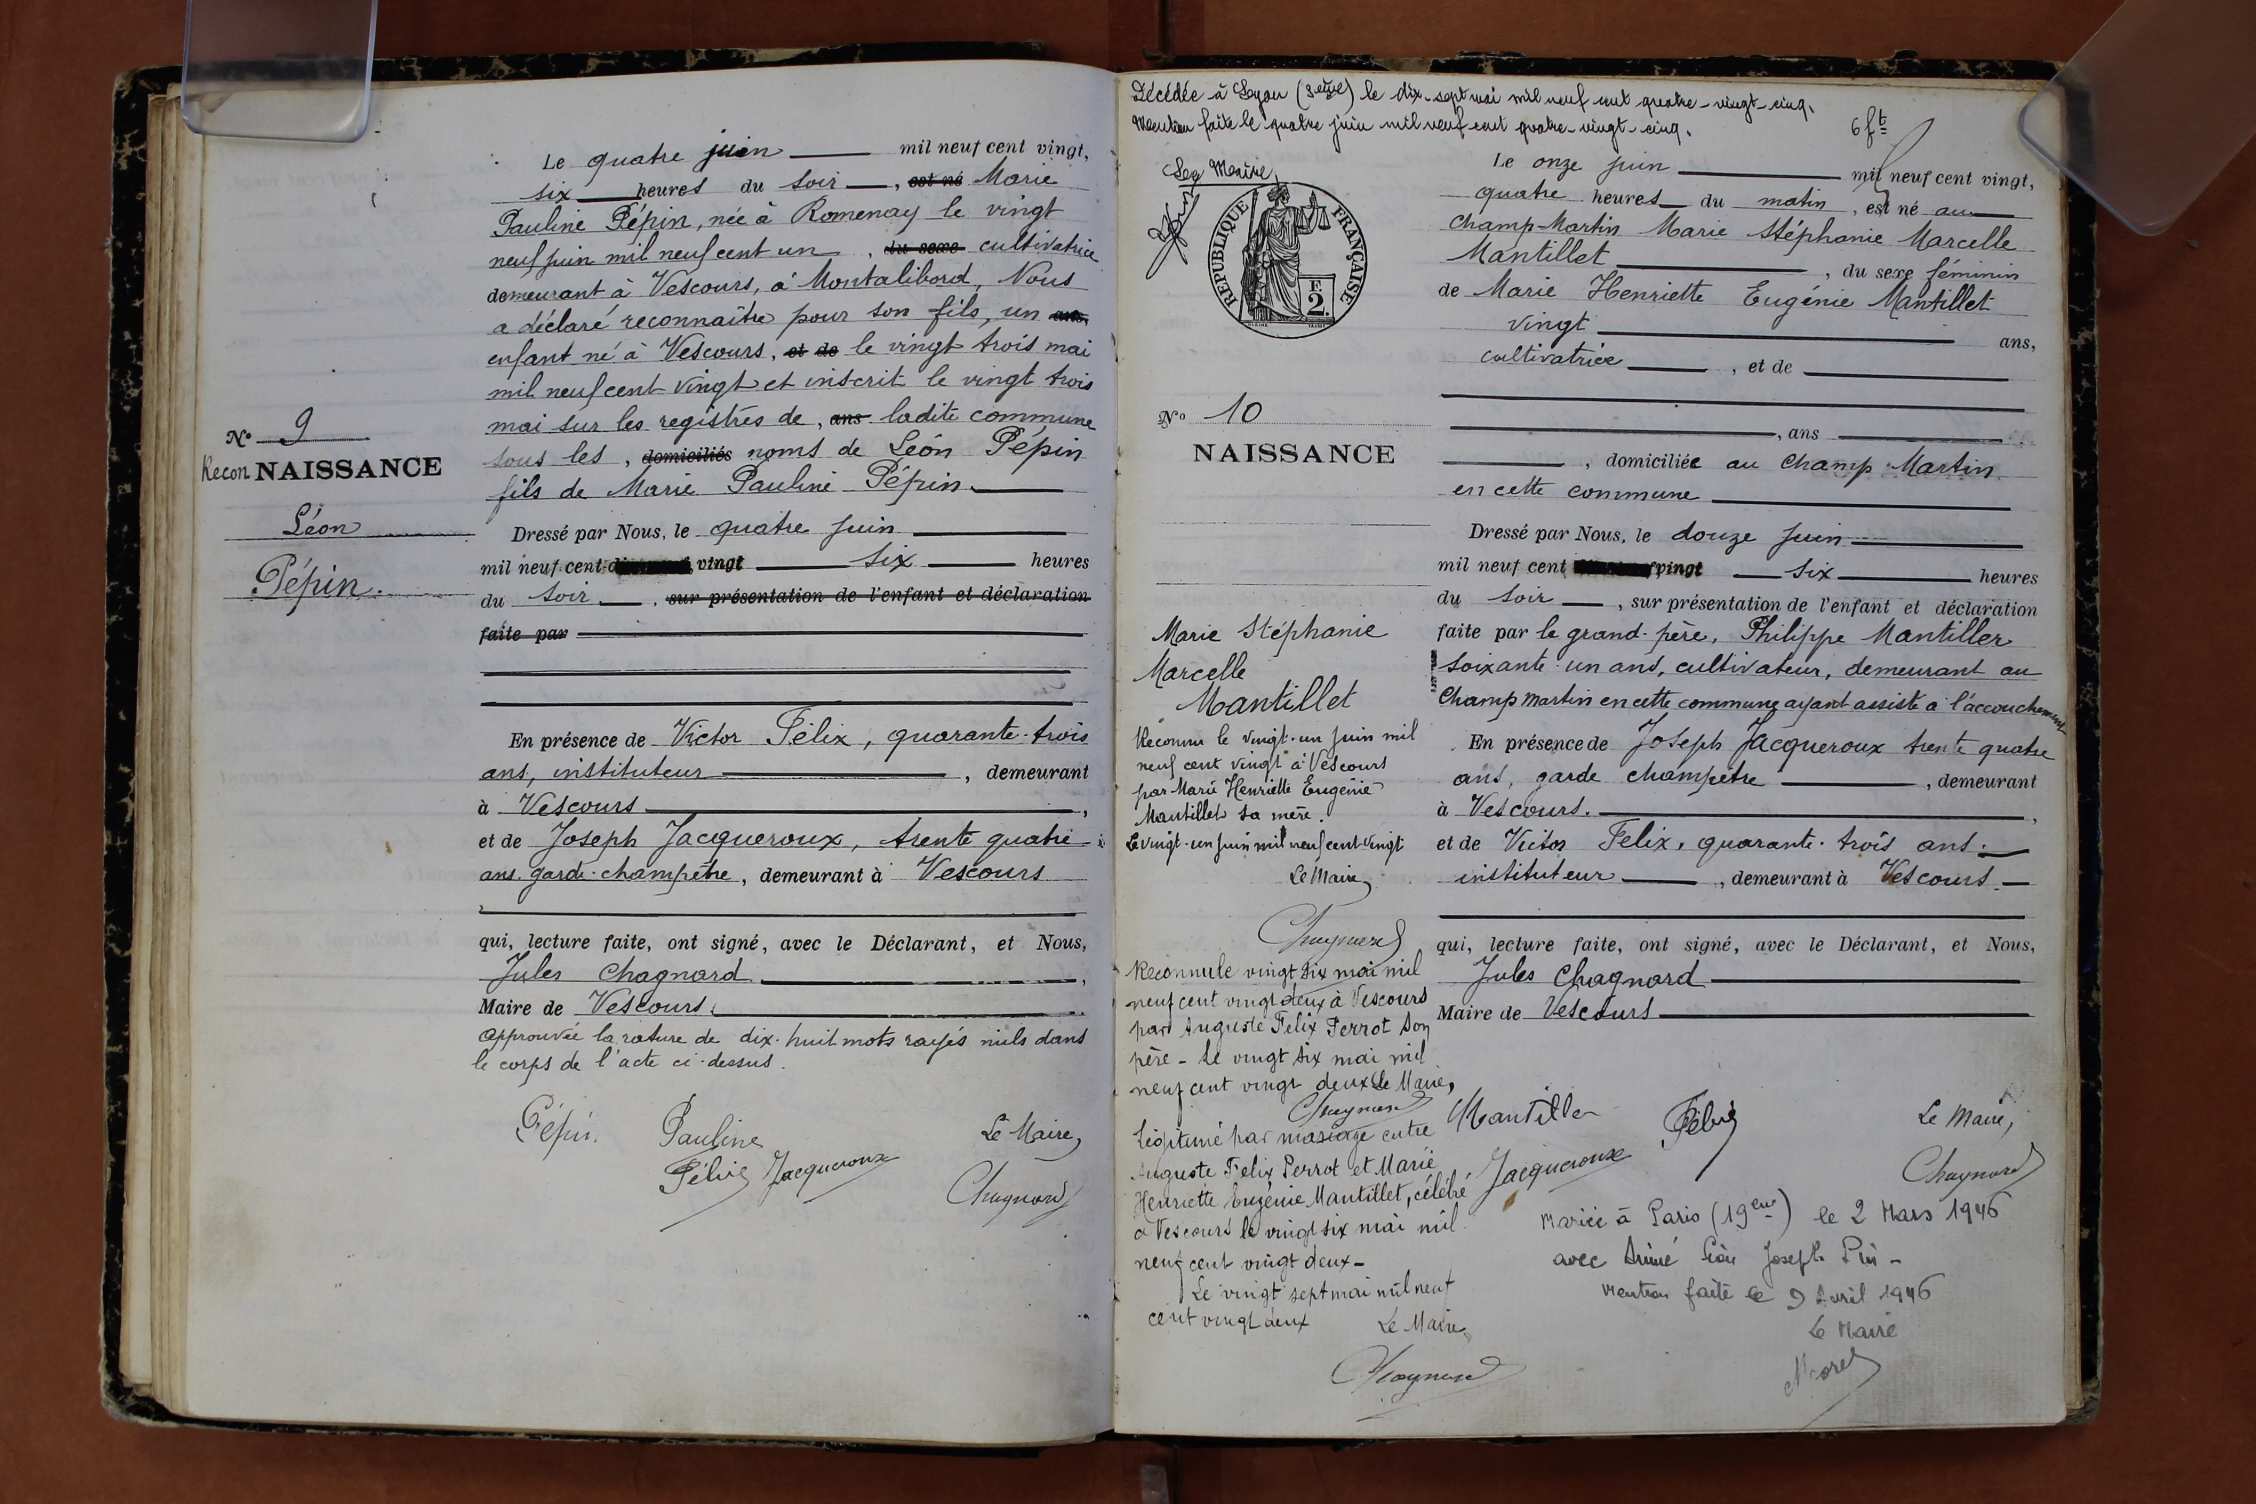 Le quatre juin mil neuf cent vingt,
six heures du soir, est né Marie
Pauline Pépin, née à Romenay le vingt
neuf juin mil neuf cent un, du sexe cultivatrice
demeurant à Vescours, à Montalibord, Nous
a déclaré reconnaître pour son fils, un ans,
enfant né à Vescours, et de le vingt trois mai
mil neuf cent vingt et inscrit le vingt trois
mai sur les registres de, ans ladite commune
sous les, domiciliés noms de Léon Pépin
fils de Marie Pauline Pépin.
Nº 9
Recon NAISSANCE
Léon
Pépin.
Dressé par Nous, le quatre juin
mil neuf cent vingt six heures
du soir, sur présentation de l'enfant et déclaration
faite par
En présence de Victor Félix, quarante-trois
ans, instituteur, demeurant
à Vescours,
et de Joseph Jacqueroux, trente quatre
ans garde-champêtre, demeurant à Vescours
qui, lecture faite, ont signé, avec le Déclarant, et Nous,
Jules Chagnard,
Maire de Vescours.
Approuvée la rature de dix-huit mots rayés nuls dans
le corps de l'acte ci-dessus.
Pépin. Pauline Le Maire,
Félix Jacqueroux Chagnard
Décédée à Lyon (3eme) le dix-sept mai mil neuf cent quatre-vingt-cinq.
Mention faite le quatre juin mil neuf cent quatre-vingt-cinq.
Le Maire,
6 ft
RÉPUBLIQUE FRANÇAISE
F.
2.
Le onze juin mil neuf cent vingt,
quatre heures du matin, est né au
champ-Martin Marie Stéphanie Marcelle
Mantillet, du sexe féminin
de Marie Henriette Eugénie Mantillet
vingt ans,
cultivatrice, et de
, ans
, domiciliée au Champ Martin
en cette commune
Nº 10
NAISSANCE
Marie Stéphanie
Marcelle
Mantillet
Dressé par Nous, le douze juin
mil neuf cent vingt six heures
du soir, sur présentation de l'enfant et déclaration
faite par le grand-père, Philippe Mantiller
soixante-un ans, cultivateur, demeurant au
Champ martin en cette commune ayant assisté à l'accouchement
En présence de Joseph Jacqueroux trente quatre
ans, garde champêtre, demeurant
à Vescours.
et de Victor Felix, quarante-trois ans.
instituteur, demeurant à Vescours.
qui, lecture faite, ont signé, avec le Déclarant, et Nous,
Jules Chagnard
Maire de Vescours
Reconnu le vingt-un juin mil
neuf cent vingt à Vescours
par Marie Henriette Eugénie
Mantillet sa mère.
Le vingt-un juin mil neuf cent vingt
Le Maire,
Chagnard
Reconnu le vingt six mai mil
neuf cent vingt deux à Vescours
par Auguste Felix Perrot son
père - Le vingt six mai mil
neuf cent vingt deux Le Maire,
Chagnard
Légitimé par mariage entre
Auguste Felix Perrot et Marie
Henriette Eugénie Mantillet, célébré
à Vescours le vingt six mai mil
neuf cent vingt deux -
Le vingt sept mai mil neuf
cent vingt deux Le Maire,
Chagnard
Mantiller Félix Le Maire,
Jacqueroux Chagnard
Mariée à Paris (19eme) le 2 Mars 1946
avec Aimé Léon Joseph
Mention faite le 9 Avril 1946
Le Maire
Morel